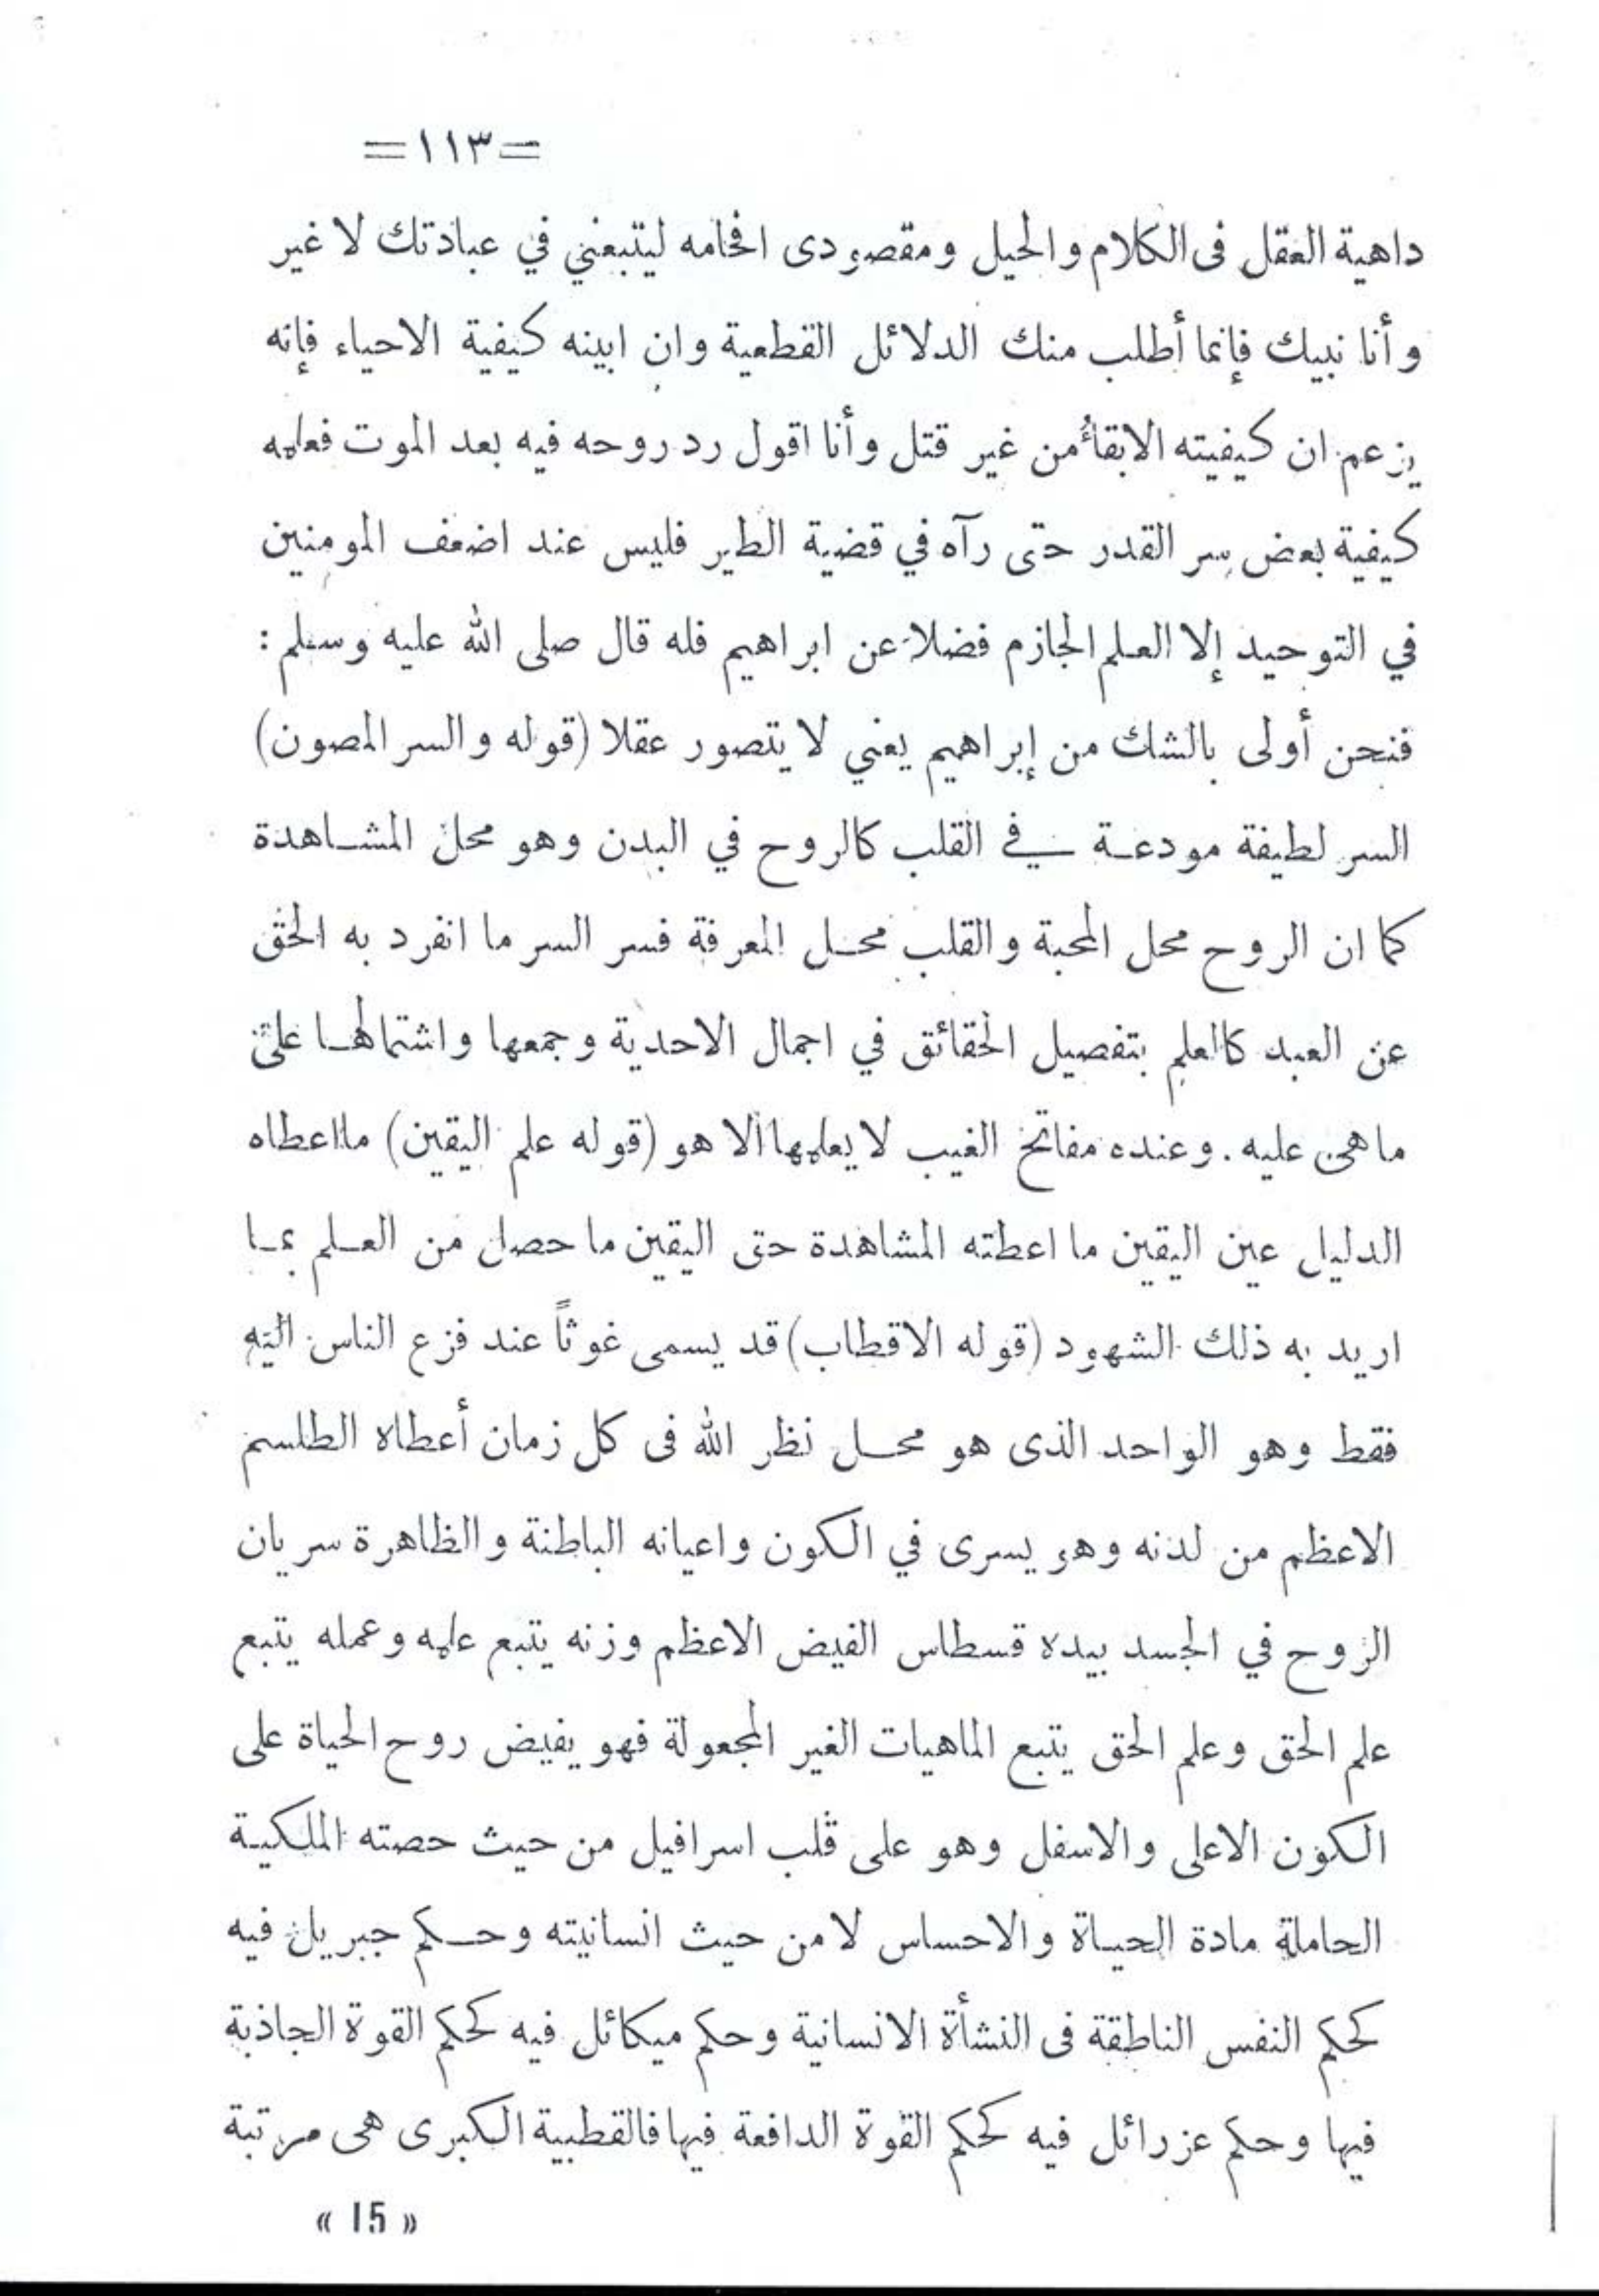 =١١٣=
داهية العقل فى الكلام والحيل ومقصودى افحامه ليتبعني في عبادتك لا غير
وأنا نبيك فإنما أطلب منك الدلائل القطعية وان ابينه كيفية الاحياء فإنه
يزعم ان كيفيته الابقأ من غير قتل وأنا اقول رد روحه فيه بعد الموت فعلمه
كيفية بعض سر القدر حتى رآه في قضية الطير فليس عند اضعف المومنين
في التوحيد إلا العلم الجازم فضلا عن ابراهيم فله قال صلى الله عليه وسلم :
فنحن أولى بالشك من إبراهيم يعني لا يتصور عقلا (قوله والسر المصون)
السر لطيفة مودعة في القلب كالروح في البدن وهو محل المشاهدة
كما ان الروح محل المحبة والقلب محل المعرفة فسر السر ما انفرد به الحق
عن العبد كالعلم بتفصيل الحقائق في اجمال الاحدية وجمعها واشتمالها على
ما هى عليه . وعنده مفاتح الغيب لا يعلمها الا هو (قوله علم اليقين) ما اعطاه
الدليل عين اليقين ما اعطته المشاهدة حتى اليقين ما حصل من العلم بما
اريد به ذلك الشهود (قوله الاقطاب) قد يسمى غوثاً عند فزع الناس اليه
فقط وهو الواحد الذى هو محل نظر الله فى كل زمان أعطاه الطلسم
الاعظم من لدنه وهو يسرى في الكون واعيانه الباطنة والظاهرة سريان
الروح في الجسد بيده قسطاس الفيض الاعظم وزنه يتبع علمه وعمله يتبع
علم الحق وعلم الحق يتبع الماهيات الغير المجعولة فهو يفيض روح الحياة على
الكون الاعلى والاسفل وهو على قلب اسرافيل من حيث حصته الملكية
الحاملة مادة الحياة والاحساس لا من حيث انسانيته وحكم جبريل فيه
كحكم النفس الناطقة فى النشأة الانسانية وحكم ميكائل فيه كحكم القوة الجاذبة
فيها وحكم عزرائل فيه كحكم القوة الدافعة فيها فالقطبية الكبرى هى مرتبة
« 15 »